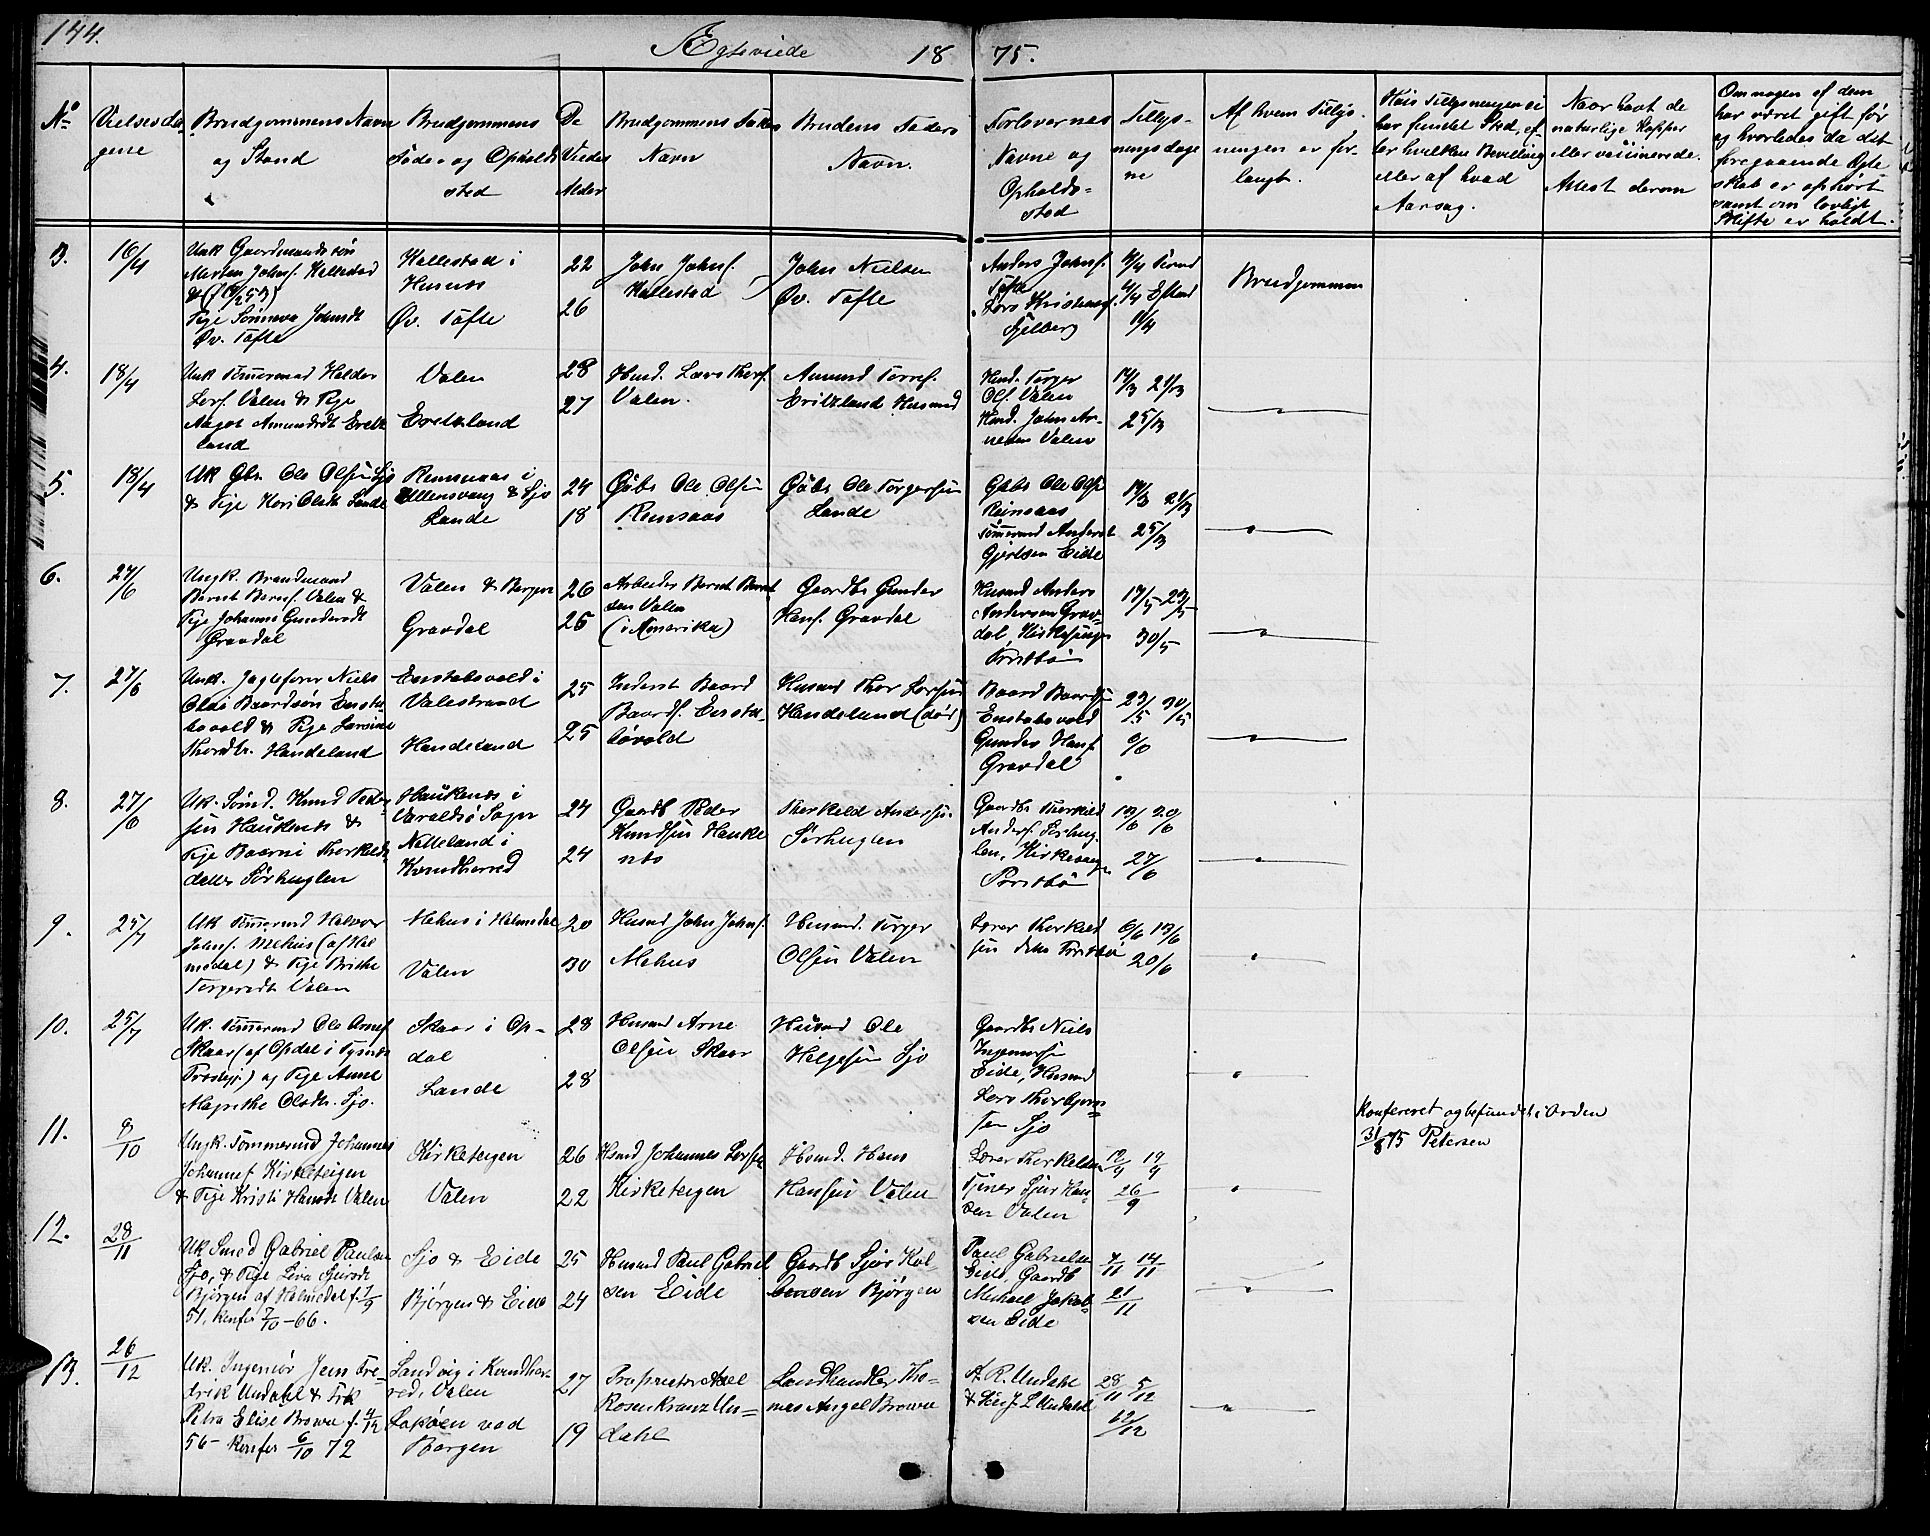 144.
Ægteviede 18 75.
No
Vielsesda-
gene
Brudgommens Navn
og Stand
Brudgommens
Føde- og Opholds
sted
De
Viedes
Alder
Brudgommens Faders
Navn
Brudens Faders
Navn.
Forlovernes
Navne og
Opholds-
sted
Tillys-
ningsdage
ne
Af hvem Tillys-
ningen er for-
langt.
Hvis Tillysningen ei
har fundet Sted, ef-
ter hvilken Bevilling
eller af hvad
Aarsag.
Naar havt de
naturlige Kopper
eller vaccinerede.
Attest derom
Om nogen af dem
har været gift før
og hvorledes da det
foregaaende Egte
skab er ophørt
samt om lovligt
Skifte er holdt.
3.
16/4
Unk Gaardmandssøn
Morten Johnf. Hallestad
Pige Sønneva Johnsdt
Øv. Tofte
Hallestad i
Husnes
Øv. Tofte
22
26
John Johnf.
Hallestad
John Nielsen
Øv. Tofte
Anders Johnf.
Tofte
Lars Kristensf.
Fjelberg
4/4
11/4
Brudgommen
4.
18/4
Unk Tømmermd Haldor
Larf. Valen & Pige
Aagot Amundsdt Erelt
land
Valen
Ereltzland
28
27
Husd. Lars Thorf.
Valen.
Amund Torref.
Husmd
Husd. Torger
Olf. Valen
Husd. John Ar-
nesen Valen
14/3 21/3
25/3
5.
18/4
Uk Gbr. Ole Olsen Sjo
& Pige Kari Olsdt Lande
Remsaas i
Ullensvang & Sjo
Lande
24
18
Gdbr Ole Olsen
Remsaas
Gdbr Ole Torgersen
Lande
Gdbr Ole Olsen
Reinsaas
Tømmermd Anders
Gjertsen Eide
14/3 21/3
25/3
6.
27/6
Ungk. Brandmand
Bernt Bernf. Valen &
Pige Johanne Gundersdt
Gravdal
Valen & Bergen
Gravdal
26
25
Arbeider Bernt Bernt
sen Valen
(i Amerika)
Gaardbr Gunder
Hansf. Gravdal
Husmd Anders
Andersen Grav-
dal, Kirkesanger
Torstbø
17/5 23/5
30/5
7.
27/6
Unk. Jagtefører Niels
Olai Baardsøn Ensta-
bovold & Pige Larsine
Thordtr. Handeland
Enstabovold i
Valestrand
Handeland
25
25
Inderst Baard
Baardf. Ensta-
bovold
Husmd Thor Larsen
Handeland (død)
Baard Baardsen
Enstabovold
Gunder Hansf.
Gravdal
23/5 30/5
6/6
8.
27/6
Uk. Sømd. Knud Peder
sen Haukenes &
Pige Baarni Therkelds
datter Sørhuglen
Haukenes i
Varaldsø Sogn
Netteland i
Kvindherred
24
24
Gaardb Peder
Knudsen Hauke
nes
Therkeld Andersen
Sørhuglen
Gaardbr Therkeld
Andersf. Sørhug-
len, Kirkesanger
Torstbø
13/6 20/6
27/6
9.
25/7
Uk Tømmermd Halvor
Johnf. Mehus (af Hol
medal) & Pige Brithe
Torgersdt Valen
Mehus i Holmedal
Valen
20
30
Husmd John Johnf.
Mehus
Husmd. Torger
Olsen Valen
Lærer Therkeld
sen dito Torstbø
6/6 13/6
20/6
10.
25/7
Uk. Tømmermd Ole Arnef
Skaar (af Opdal i Tysnes
Præstegj.) og Pige Anne
Magrethe Olsdtr. Sjo.
Skaar i Op-
dal
Lande
28
28
Husmd Arne
Olsen Skaar
Husmd Ole
Helgesen Sjo
Gaardbr Niels
Ingemarsen
Eide, Husmd
Lars Thorbjørn-
sen Sjo
Konfereret og befundet i Orden
31/8 75 Petersen
11.
9/10
Ungk. Tømmermd Johannes
Johannesf Kirketeigen
& Pige Kristi Hansdt Valen
Kirketeigen
Valen
26
22
Hsmd Johannes Larsen
Kirketeigen
Hsmd. Hans
Hansen Valen
Lærer Therkeldsen
Tjener Sjur Han-
sen Valen
12/9 19/9
26/9
12.
28/11
Uk Smed Gabriel Paulsen
Sjo, & Pige Siva Sjursdt
Bjørgen af Holmedal f. 1/9
51, konfir 7/10-66.
Sjo & Eide
Bjørgen & Eide
25
24
Husmd Paul Gabriel
sen Eide
Gaardb Sjur Kol-
bensen Bjørgen
Paul Gabrielsen
Eide, Gaardb
Mikael Jakob-
sen Eide
7/11 14/11
21/11
13.
26/12
Uk. Ingeniør Jens Fre-
drik Undahl & Frk
Petra Elise Brown f. 4/12
56- Konfir 6/10 72
Sandvig i Kvindher-
red, Valen
Laksøen ved
Bergen
27
19
Proprietær Axel
Rosenkranz Un-
dahl
Landhandler Tho-
mas Angel Brown
A. R. Undahl
& J. L. Undahl
28/11 5/12
12/12